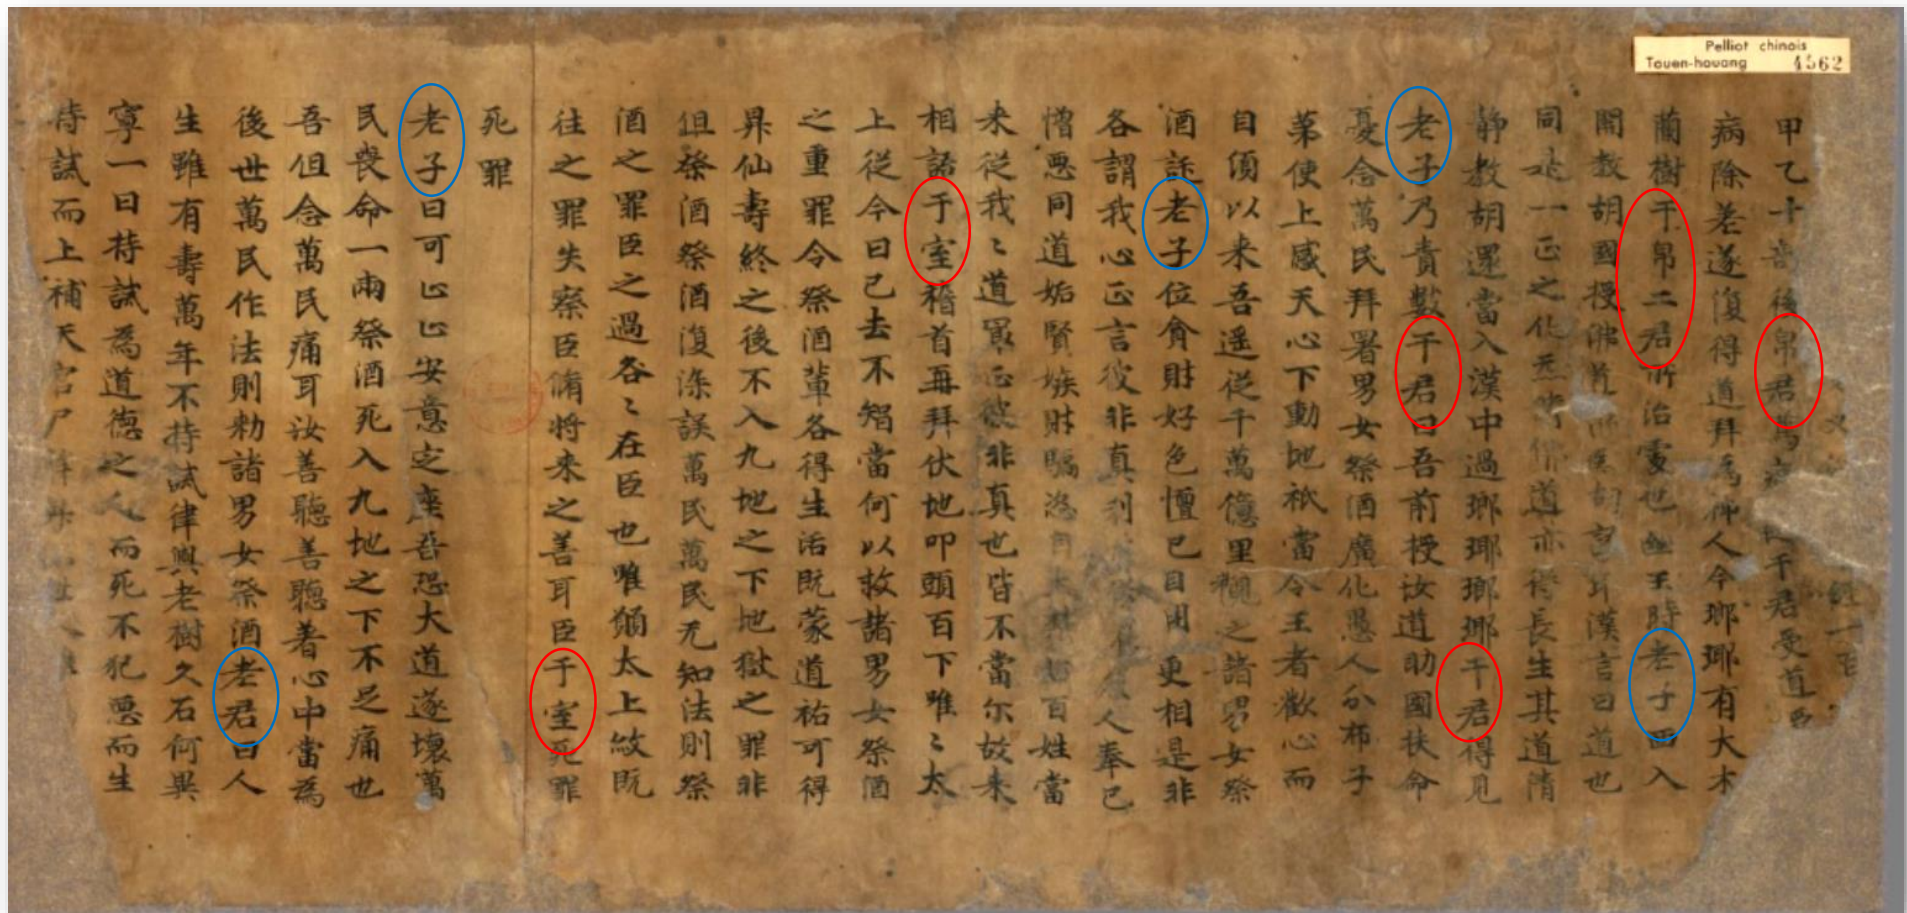 Pelliot chinois
Touen-houang 4562
又
甲乙十部後帛君篤病干君受道
病除差遂復得道拜為仙人今瑯琊有大木
蘭樹干帛二君所治處也幽王時老子西入
關教胡國授佛胡言耳漢言曰道也
同是一正之化道亦得長生其道清
靜教胡還當入漢中過瑯琊瑯琊干君得見
老子乃責數干君曰吾前授汝道助國扶命
憂念萬民拜署男女祭酒廣化愚人分布子
苐使上感天心下動地祇當令王者歡心而
自須以来吾遥從千萬億里觀之諸男女祭
酒託老子位貪財好色擅已自用更相是非
各謂我心正言彼非真利人奉已
憎惡同道妬賢嫉財驕恣自大百姓當
来從我〻道冣正彼非真也皆不當尔故来
相語于室稽首再拜伏地叩頭百下唯〻太
上從今日已去不知當何以救諸男女祭酒
之重罪令祭酒輩各得生活既蒙道祐可得
昇仙壽終之後不入九地之下地獄之罪非
但祭酒祭酒復深誤萬民萬民无知法則祭
酒之罪臣之過咎〻在臣也唯願太上既
往之罪失察臣脩将来之善耳臣于室死罪
死罪
老子曰可止止安意定座吾恐大道遂壞萬
民喪命一兩祭酒死入九地之下不足痛也
吾但念萬民痛耳汝善聽善聽著心中當為
後世萬民作法則勑諸男女祭酒老君曰人
生雖有壽萬年不持誡律與老樹久石何異
寧一日持誡為道德之人而死不犯惡而生
持誡而上補天官尸解